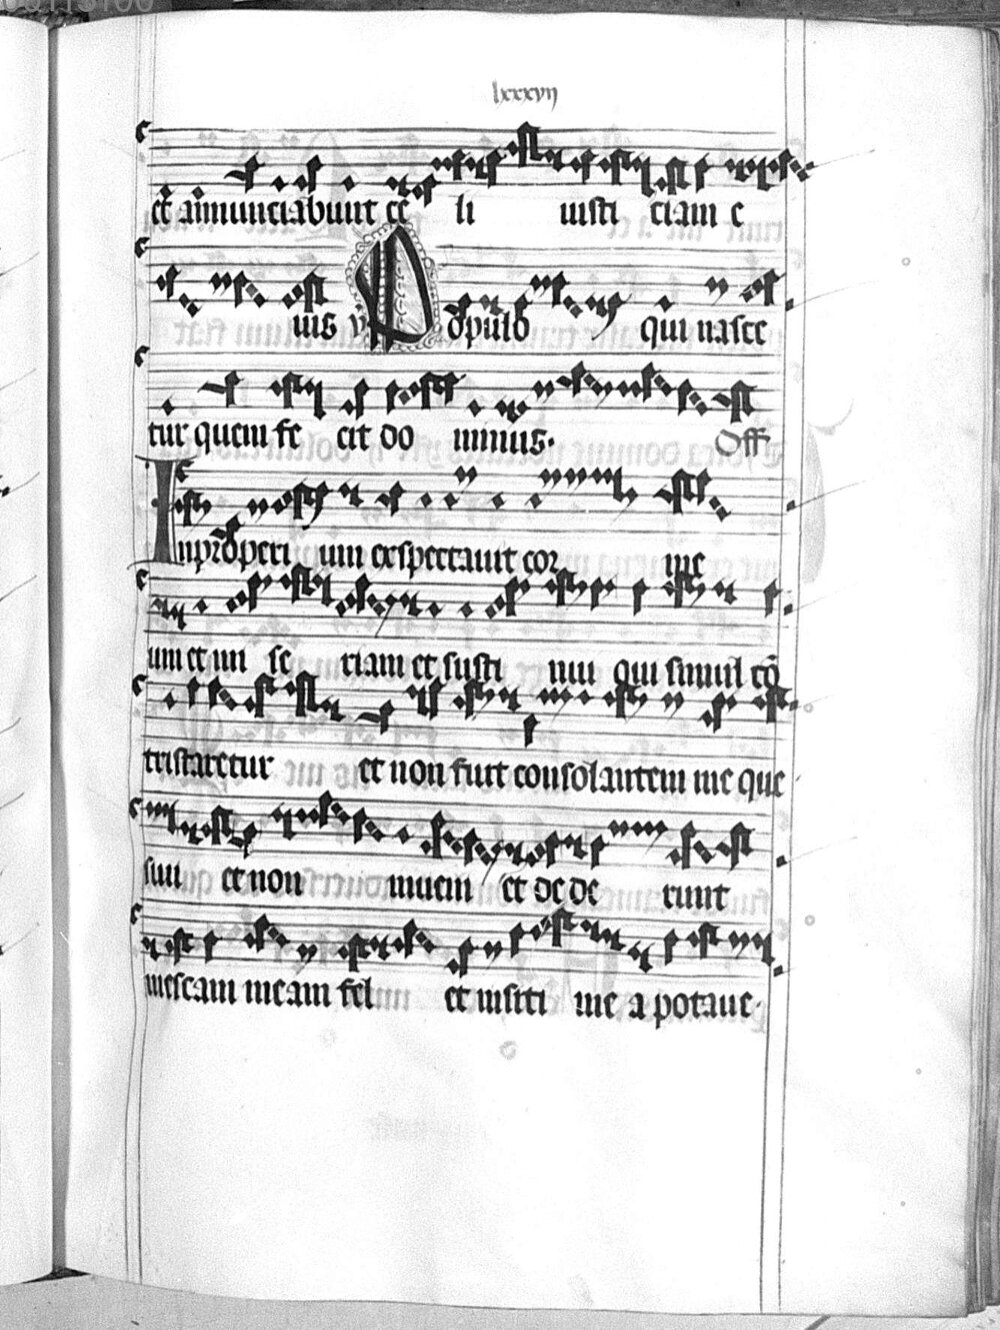 lxxxvij
et annunciabunt ce li iusti ciam e
ius v P opulo qui nasce
tur quem fe cit do minus. Off
Inproperi um exspectauit cor me
um et mi se riam et susti nui qui simul cō
tristaretur et non fuit consolantem me que
siui et non inueni et de de runt
in escam meam fel et in siti me a potaue.